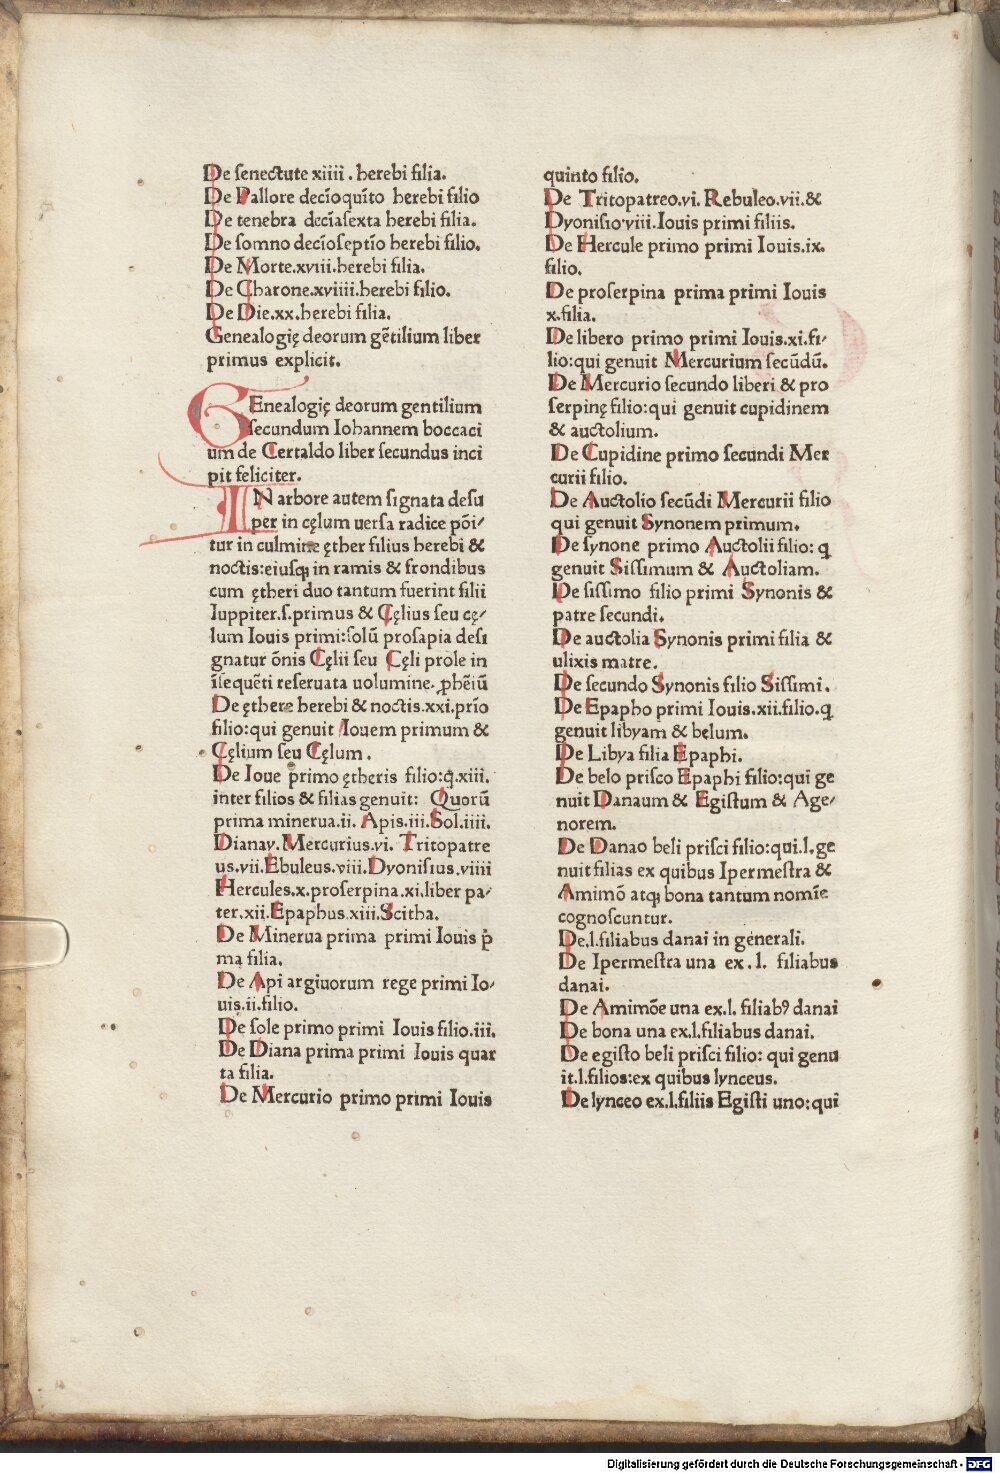 De senectute xiiii . herebi filia.
De Pallore decīoquīto herebi filio
De tenebra decīasexta herebi filia.
De somno decīoseptīo herebi filio.
De Morte.xviii.herebi filia.
De Charone.xviiii.herebi filio.
De Die.xx.herebi filia.
Genealogię deorum gētilium liber
primus explicit.
GEnealogię deorum gentilium
secundum Iohannem boccaci
um de Certaldo liber secundus inci
pit feliciter.
IN arbore autem signata desu
per in cęlum uersa radice pōi/
tur in culmine ęther filius herebi &
noctis:eiusꝙ in ramis & frondibus
cum ętheri duo tantum fuerint filii
Iuppiter.s.primus & Cęlius seu cę/
lum Iouis primi:solū prosapia desi
gnatur ōnis Cęlii seu Cęli prole in
īsequēti reseruata uolumine. ꝓhēiū
De ęthere herebi & noctis.xxi.prīo
filio:qui genuit Iouem primum &
Cęlium seu Cęlum .
De Ioue primo ętheris filio:q.xiii.
inter filios & filias genuit: Quorū
prima minerua.ii. Apis.iii.Sol.iiii.
Dianav. Mercurius.vi. Tritopatre
us.vii.Ebuleus.viii.Dyonisius.viiii
Hercules.x.proserpina.xi.liber pa/
ter.xii.Epaphus.xiii.Scitha.
De Minerua prima primi Iouis p̄
ma filia.
De Api argiuorum rege primi Io/
uis.ii.filio.
De sole primo primi Iouis filio.iii.
De Diana prima primi Iouis quar
ta filia.
De Mercurio primo primi Iouis
quinto filio.
De Tritopatreo.vi. Rebuleo.vii.&
Dyonisio.viii.Iouis primi filiis.
De Hercule primo primi Iouis.ix.
filio.
De proserpina prima primi Iouis
x.filia.
De libero primo primi Iouis.xi.fi/
lio:qui genuit Mercurium secūdū.
De Mercurio secundo liberi & pro
serpinę filio:qui genuit cupidinem
& auctolium.
De Cupidine primo secundi Mer
curii filio.
De Auctolio secūdi Mercurii filio
qui genuit Synonem primum.
De synone primo Auctolii filio: q
genuit Sissimum & Auctoliam.
De sissimo filio primi Synonis &
patre secundi.
De auctolia Synonis primi filia &
ulixis matre.
De secundo Synonis filio Sissimi.
De Epapho primi Iouis.xii.filio.q
genuit libyam & belum.
De Libya filia Epaphi.
De belo prisco Epaphi filio:qui ge
nuit Danaum & Egistum & Age/
norem.
De Danao beli prisci filio:qui.l.ge
nuit filias ex quibus Ipermestra &
Amimō atqꝫ bona tantum nomīe
cognoscuntur.
De.l.filiabus danai in generali.
De Ipermestra una ex.l. filiabus
danai.
De Amimōe una ex.l. filiabꝰ danai
De bona una ex.l.filiabus danai.
De egisto beli prisci filio: qui genu
it.l.filios:ex quibus lynceus.
De lynceo ex.l.filiis Egisti uno:qui
Digitalisierung gefördert durch die Deutsche Forschungsgemeinschaft - DFG